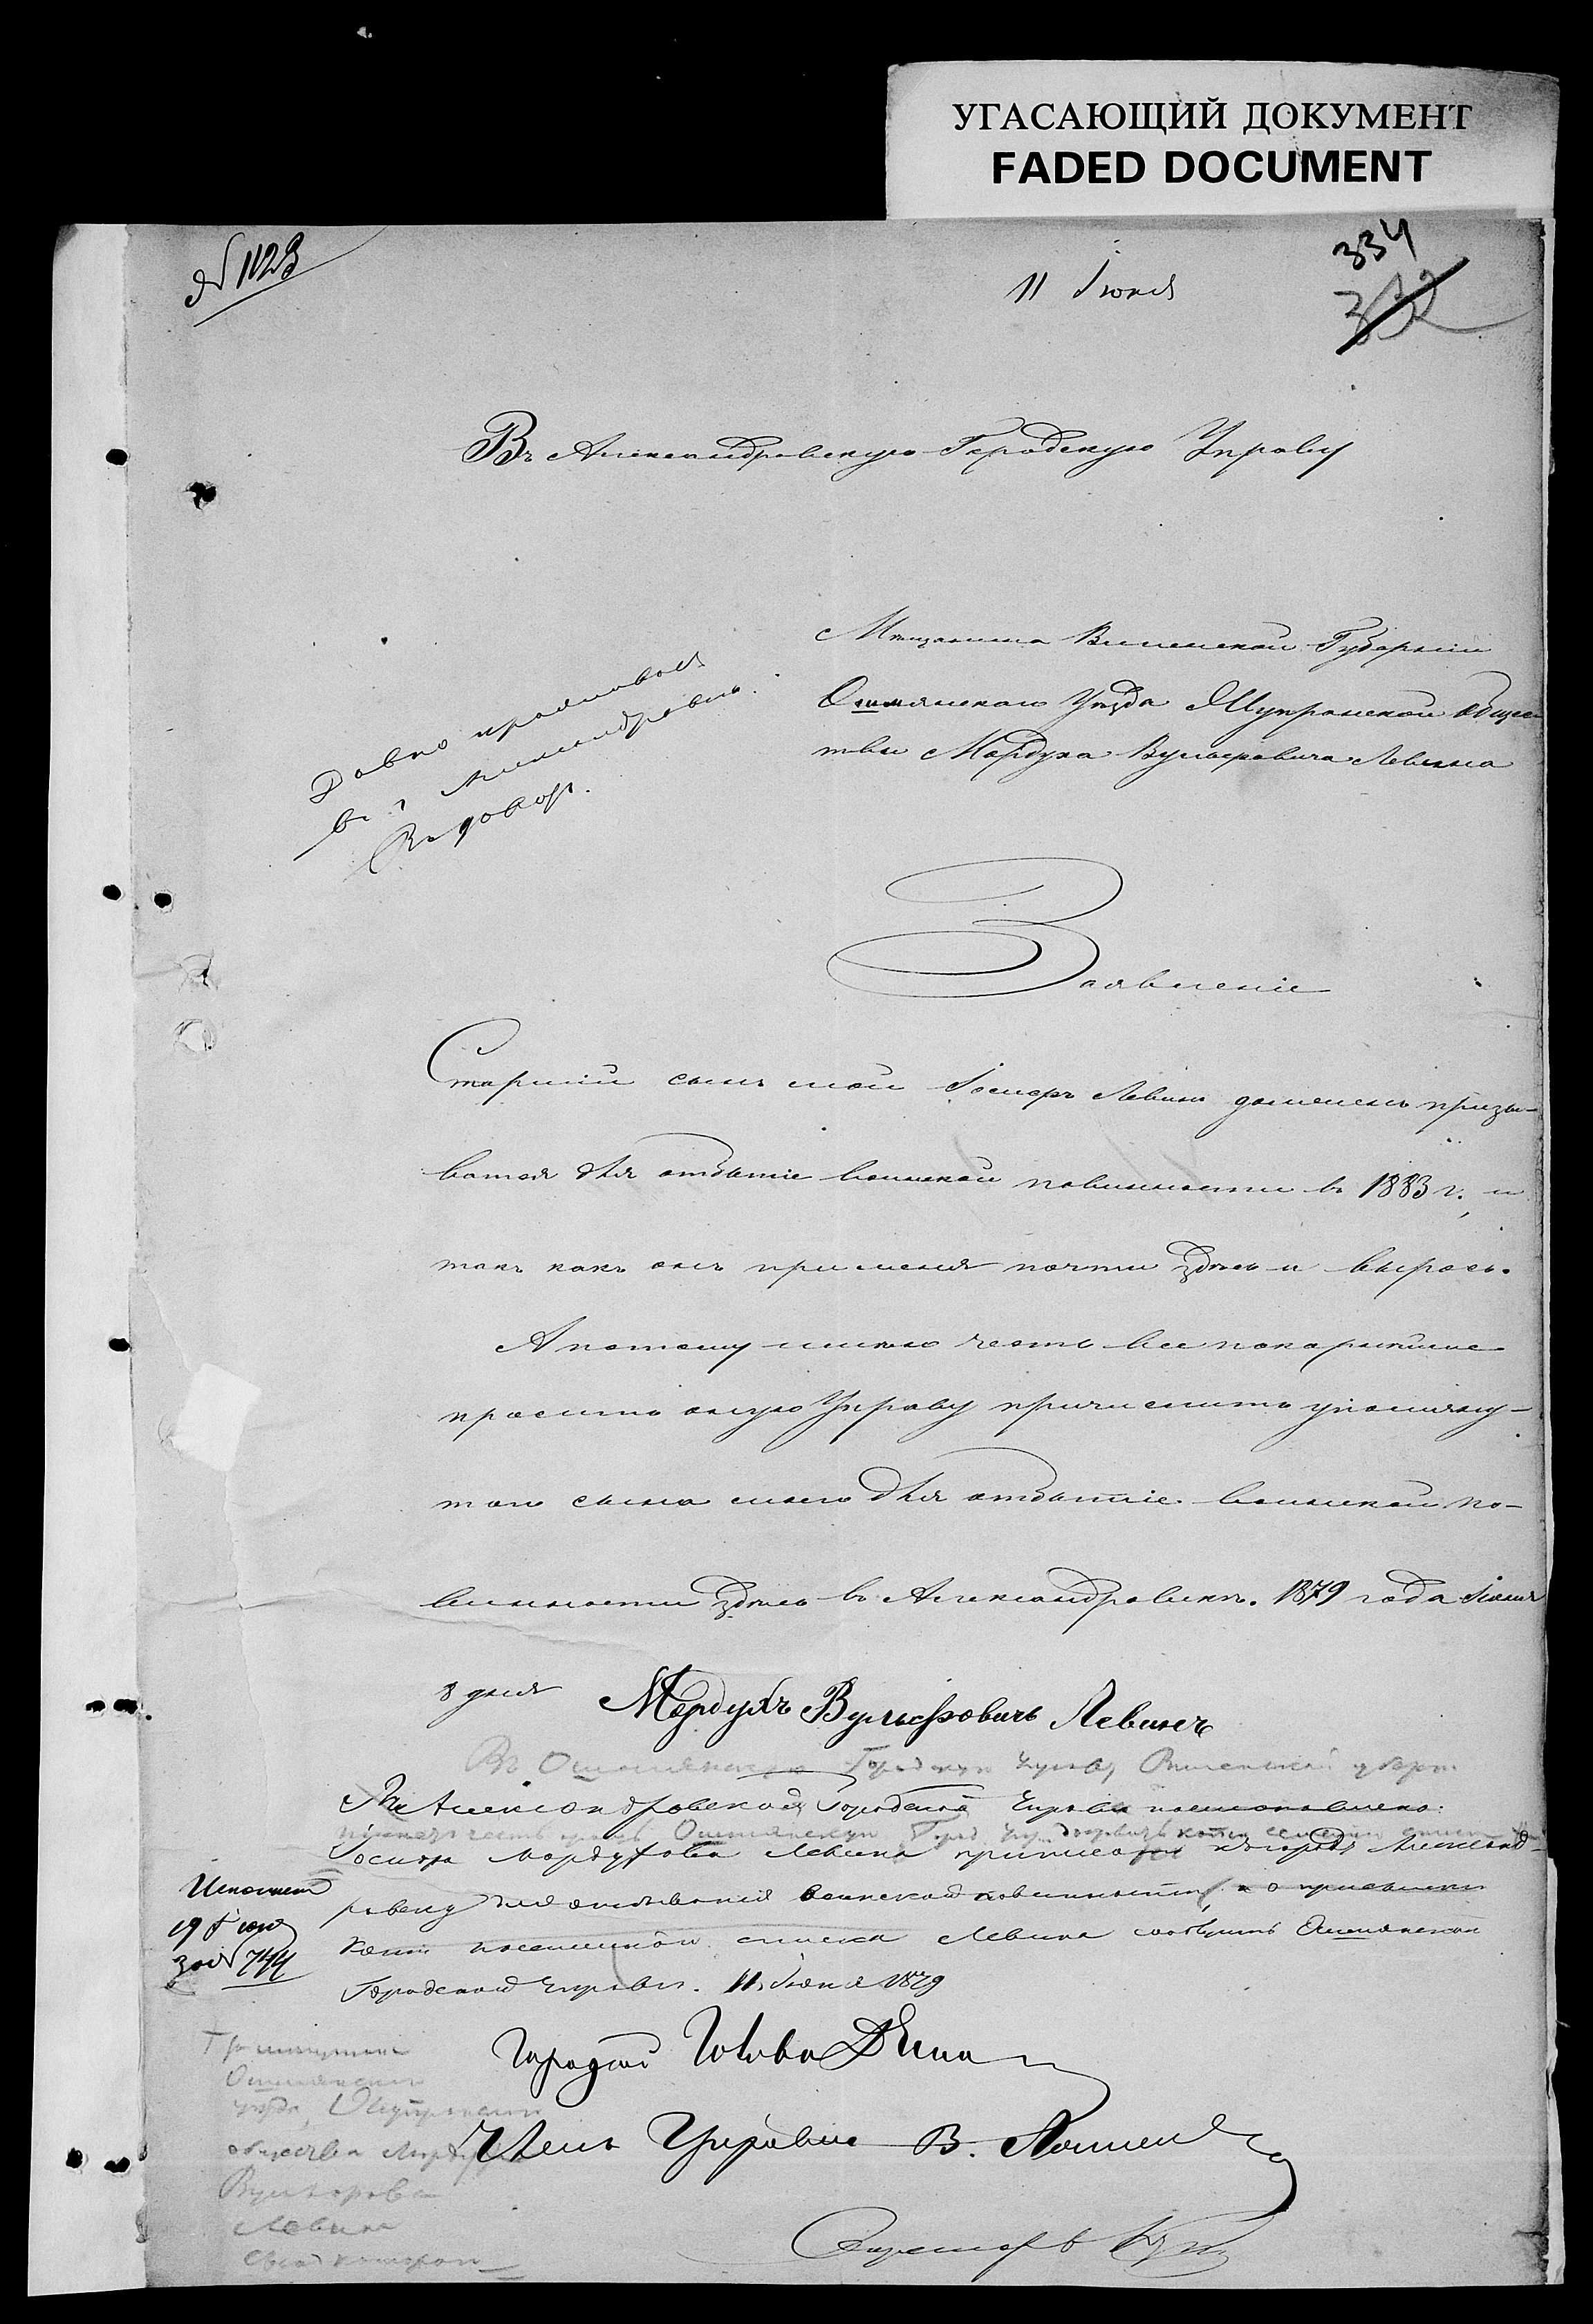 УГАСАЮЩИЙ ДОКУМЕНТ
FADED DOCUMENT
№ 1123
11 Іюня
334
332
Въ Александровскую Городскую Управу
Мѣщанина Виленской Губерніи
Ошмянскаго Уѣзда Шупранской общес-
твы Мордуха Вульфовича Левина
Давно проживая
въ г Александровскѣ.
Заявленіе
Старшій сынъ мой Іосифъ Левинъ долженъ призы-
ватся для отбытіе воинской повинности въ 1883 г., и
такъ какъ онъ при меня почти здѣсь и выросъ.
А потому имѣю честь всепокорнѣйше
просить оную Управу причислить упомяну-
таго сына моего для отбытіе воинской по-
винности здѣсь въ Александровскѣ. 1879 года Іюня
8 дня Мордухъ Вульфовичъ Левинъ
Въ Ошмянскую Городскую Управу, Виленской губерн
Въ Александровской Городской Управѣ постановлено:
Іосифа Мордухова Левина приписать къ городу Александ-
ровску для отбыванія воинской повинности, а о присылкѣ
копіи посемейнаго списка Левина сообщить Ошмянской
Городской Управѣ. 11 Іюня 1879
Исполнено
19 Іюня
за № 744
Городской Голова
Членъ Управы В.
Секретарь
Ошмянскаго
уѣзда, Шупранскаго
общества Мордуха
Вульфова
Левина